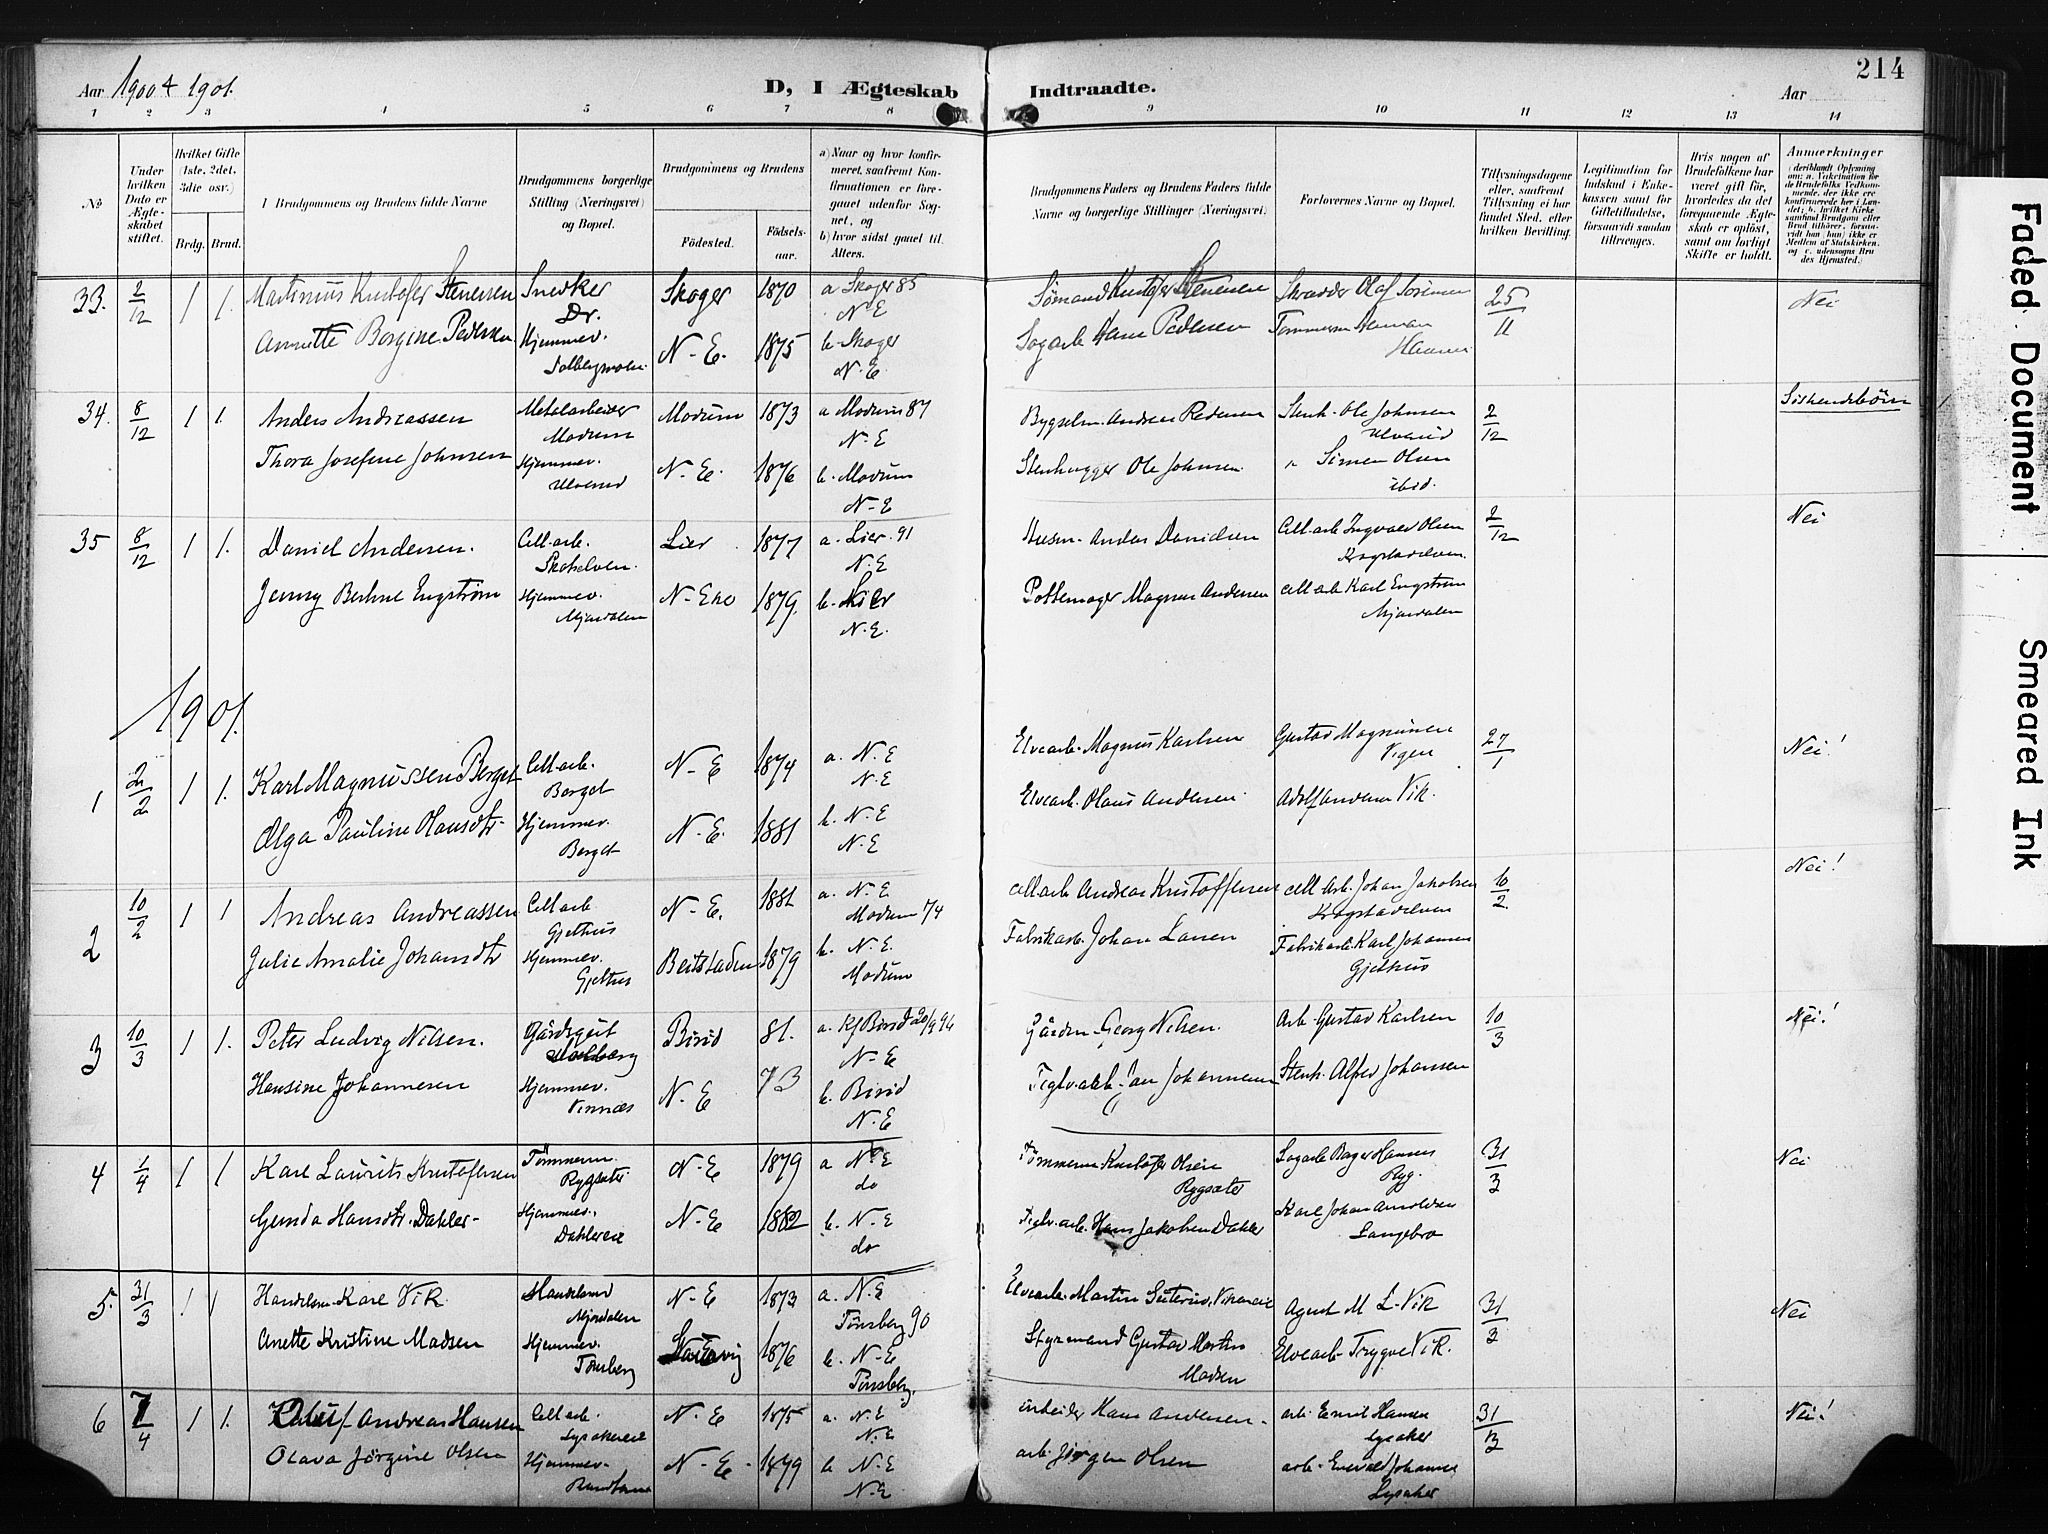 Aar 1900 & 1901.
D, I Ægteskab Indtraadte.
214
Aar
1 2 3 4 5 6 7 8 9 10 11 12 13 14
No
Under hvilken Dato er Ægteskabet stiftet.
Hvilket Gifte (1ste, 2det, 3die osv.)
Brdg. Brud.
I Brudgommens og Brudens fulde Navne
Brudgommens borgerlige Stilling (Næringsvei) og Bopæl.
Brudgommens og Brudens
Födested.
Födselsaar.
a) Naar og hvor konfirmeret, saafremt Konfirmationen er foregaaet udenfor Sognet, og
b) hvor sidst gaaet til Alters.
Brudgommens Faders og Brudens Faders fulde Navne og borgerlige Stillinger (Næringsvei)
Forlovernes Navne og Bopæl.
Tillysningsdagene eller, saafremt Tillysning ei har fundet Sted, efter hvilken Bevilling.
Legitimation for Indskud i Enkekassen samt for Giftetilladelse, forsaavidt saadan tiltrænges.
Hvis nogen af Brudefolkene har været gift før, hvorledes da det foregaaende Ægteskab er opløst, samt om lovligt Skifte er holdt.
Anmerkninger
(deriblandt Oplysning om: a. Vakcination for de Brudefolks Vedkommende, der ikke ere konfirmerede her i Landet; b. hvilket Kirkesamfund Brudgom eller Brud tilhører, forsaavidt han (hun) ikke er Medlem af Statskirken, og c. udensogns Brudes Hjemsted.)
33. 2/12 1 1. Martinius Kristofer Stenersen Snedker Dr. Skoger 1870 a Skoger 85 N E Sømand Kristofer Stenersen Skrædder Olaf Sørensen 25/11 Nei
Annette Borgine Pedersen Hjemmev. Solbergmoen N-E. 1875 b. Skoger N.E. Sagarb Hans Pedersen Tømmerm Herman
34. 8/12 1 1. Anders Andreassen Metalarbeider Modum Modum 1873 a Modum 87 N.E Bygselm. Andreas Pedersen Stenh. Ole Johnsen Ulverud 2/12 Söskendebörn
Thora Josefine Johnsen Hjemmev. Ulverud N-E. 1876 b. Modum N-E Stenhugger Ole Johnsen " Simen Olsen ibid.
35 8/12 1 1. Daniel Andersen. Cell.arb. Skotselven. Lier 1877 a. Lier. 91 N.E Husm. Anders Danielsen Cell arb Ingvald Olsen Krogstadelven. 2/12 Nei
Jenny Berthine Engström Hjemmev. Mjøndalen N-Eke 1879. b. Lier N.E. Pottemager Magnus Andersen cell arb Karl Engström Mjøndalen
1901.
1 2/2 1 1. Karl Magnussen Berget Cell arb. Berget N-E 1874 a. N.E N.E Elvearb. Magnus Karlsen Gustav Magnussen Vigen 27/1 Nei!
Olga Pauline Olausdtr. Hjemmev. Berget N.E. 1881 b. N.E N.E Elvearb. Olaus Andersen. Adolf Andersen Vik.
2 10/2 1 1 Andreas Andreassen Cell arb Gjethus N.E. 1881 a. N.E Modum 7/4 cell arb Andreas Kristoffersen cell Arb. Johan Jakobsen Krogstadelven 10/2. Nei!
Julie Amalie Johansdtr Hjemmev. Gjethus Beitstaden 1879 b. N.E. Modum Fabrikarb. Johan Larsen Fabrikarb. Karl Johansen Gjethus
3 10/3 1 1. Peter Ludvig Nilsen. Gårdsgut Solberg Birid 81. a. Kf Birid 20/9 96 N-E Gårdm. Georg Nilsen. Arb. Gustav Karlsen 10/3 Nei!
Hansine Johannesen Hjemmev. Vinnæs N-E 73 b. Birid N.E Teglv.arb. Johannesen Stenh. Alfred Johansen
4 1/4 1 1 Karl Laurits Kristofersen Tömmerm. Rygsæter N-E 1879 a N.E do Tömmerm Kristofer Olsen Rygsæter Sagarb Hansen Ryg. 31/3 Nei
Gunda Hansdtr. Dahler- Hjemmev. Dahlereie N-E 1882 b. N-E do Teglv.arb. Hans Jakobsen Dahler Karl Johan Arnoldsen Langebro
5. 31/3 1 1 Handelsm. Karl Vik Handelsmd Mjøndalen N-E 1873 a. N.E Tönsberg 90 Elvearb. Martin Vikereie Agent M L. Vik 31/3 Nei
Anette Kristine Madsen Hjemmev. Tönsberg 1876 b. N-E Tönsberg. Styrmand Gustav Martin Madsen Elvearb. Trygve Vik.
6 7/4 1 1. Oluf Andreas Hansen Cell arb. Lysakereie N-E 1875 a. N.E N.E arbeider Hans Andersen. arb. Emil Hansen Lysaker 31/3 Nei!
Olava Jörgine Olsen Hjemmev. N-E. 1879 b N-E N-E arb. Jörgen Olsen arb. Enevald Johansen Lysaker
Faded Document
Smeared Ink